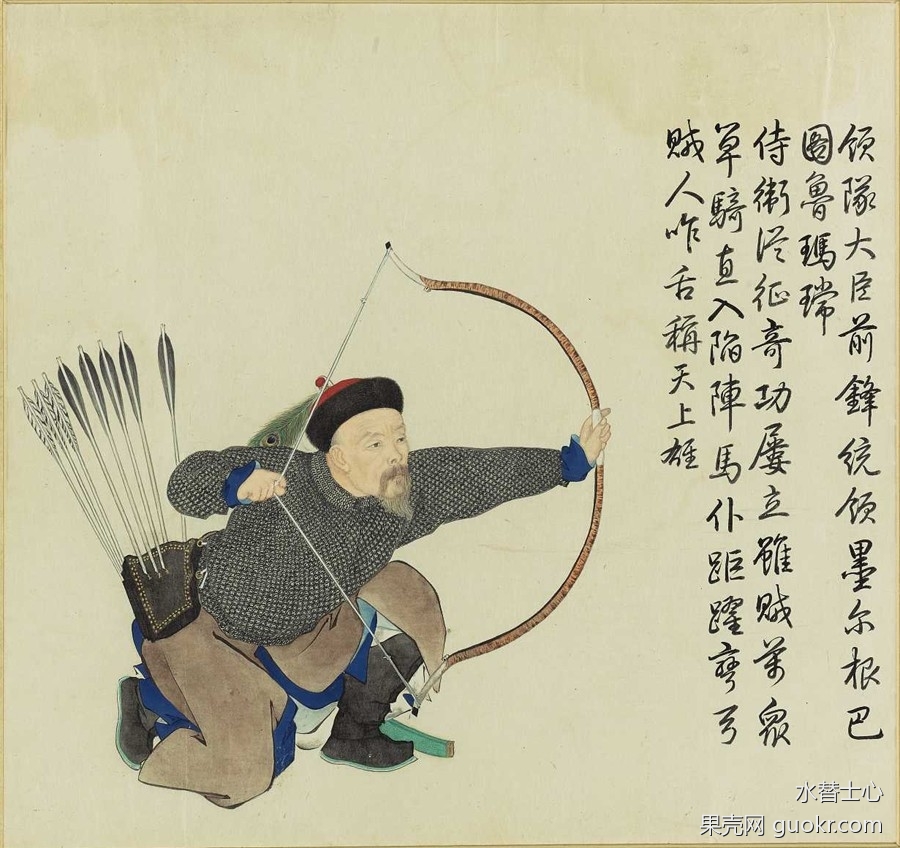 領隊大臣前鋒統領墨尔根巴
圖魯瑪瑺
侍衛從征奇功屢立雖賊萬眾
單騎直入陷陣馬仆距躍彎弓
賊人咋舌稱天上雄
水替士心
果壳网 guokr.com